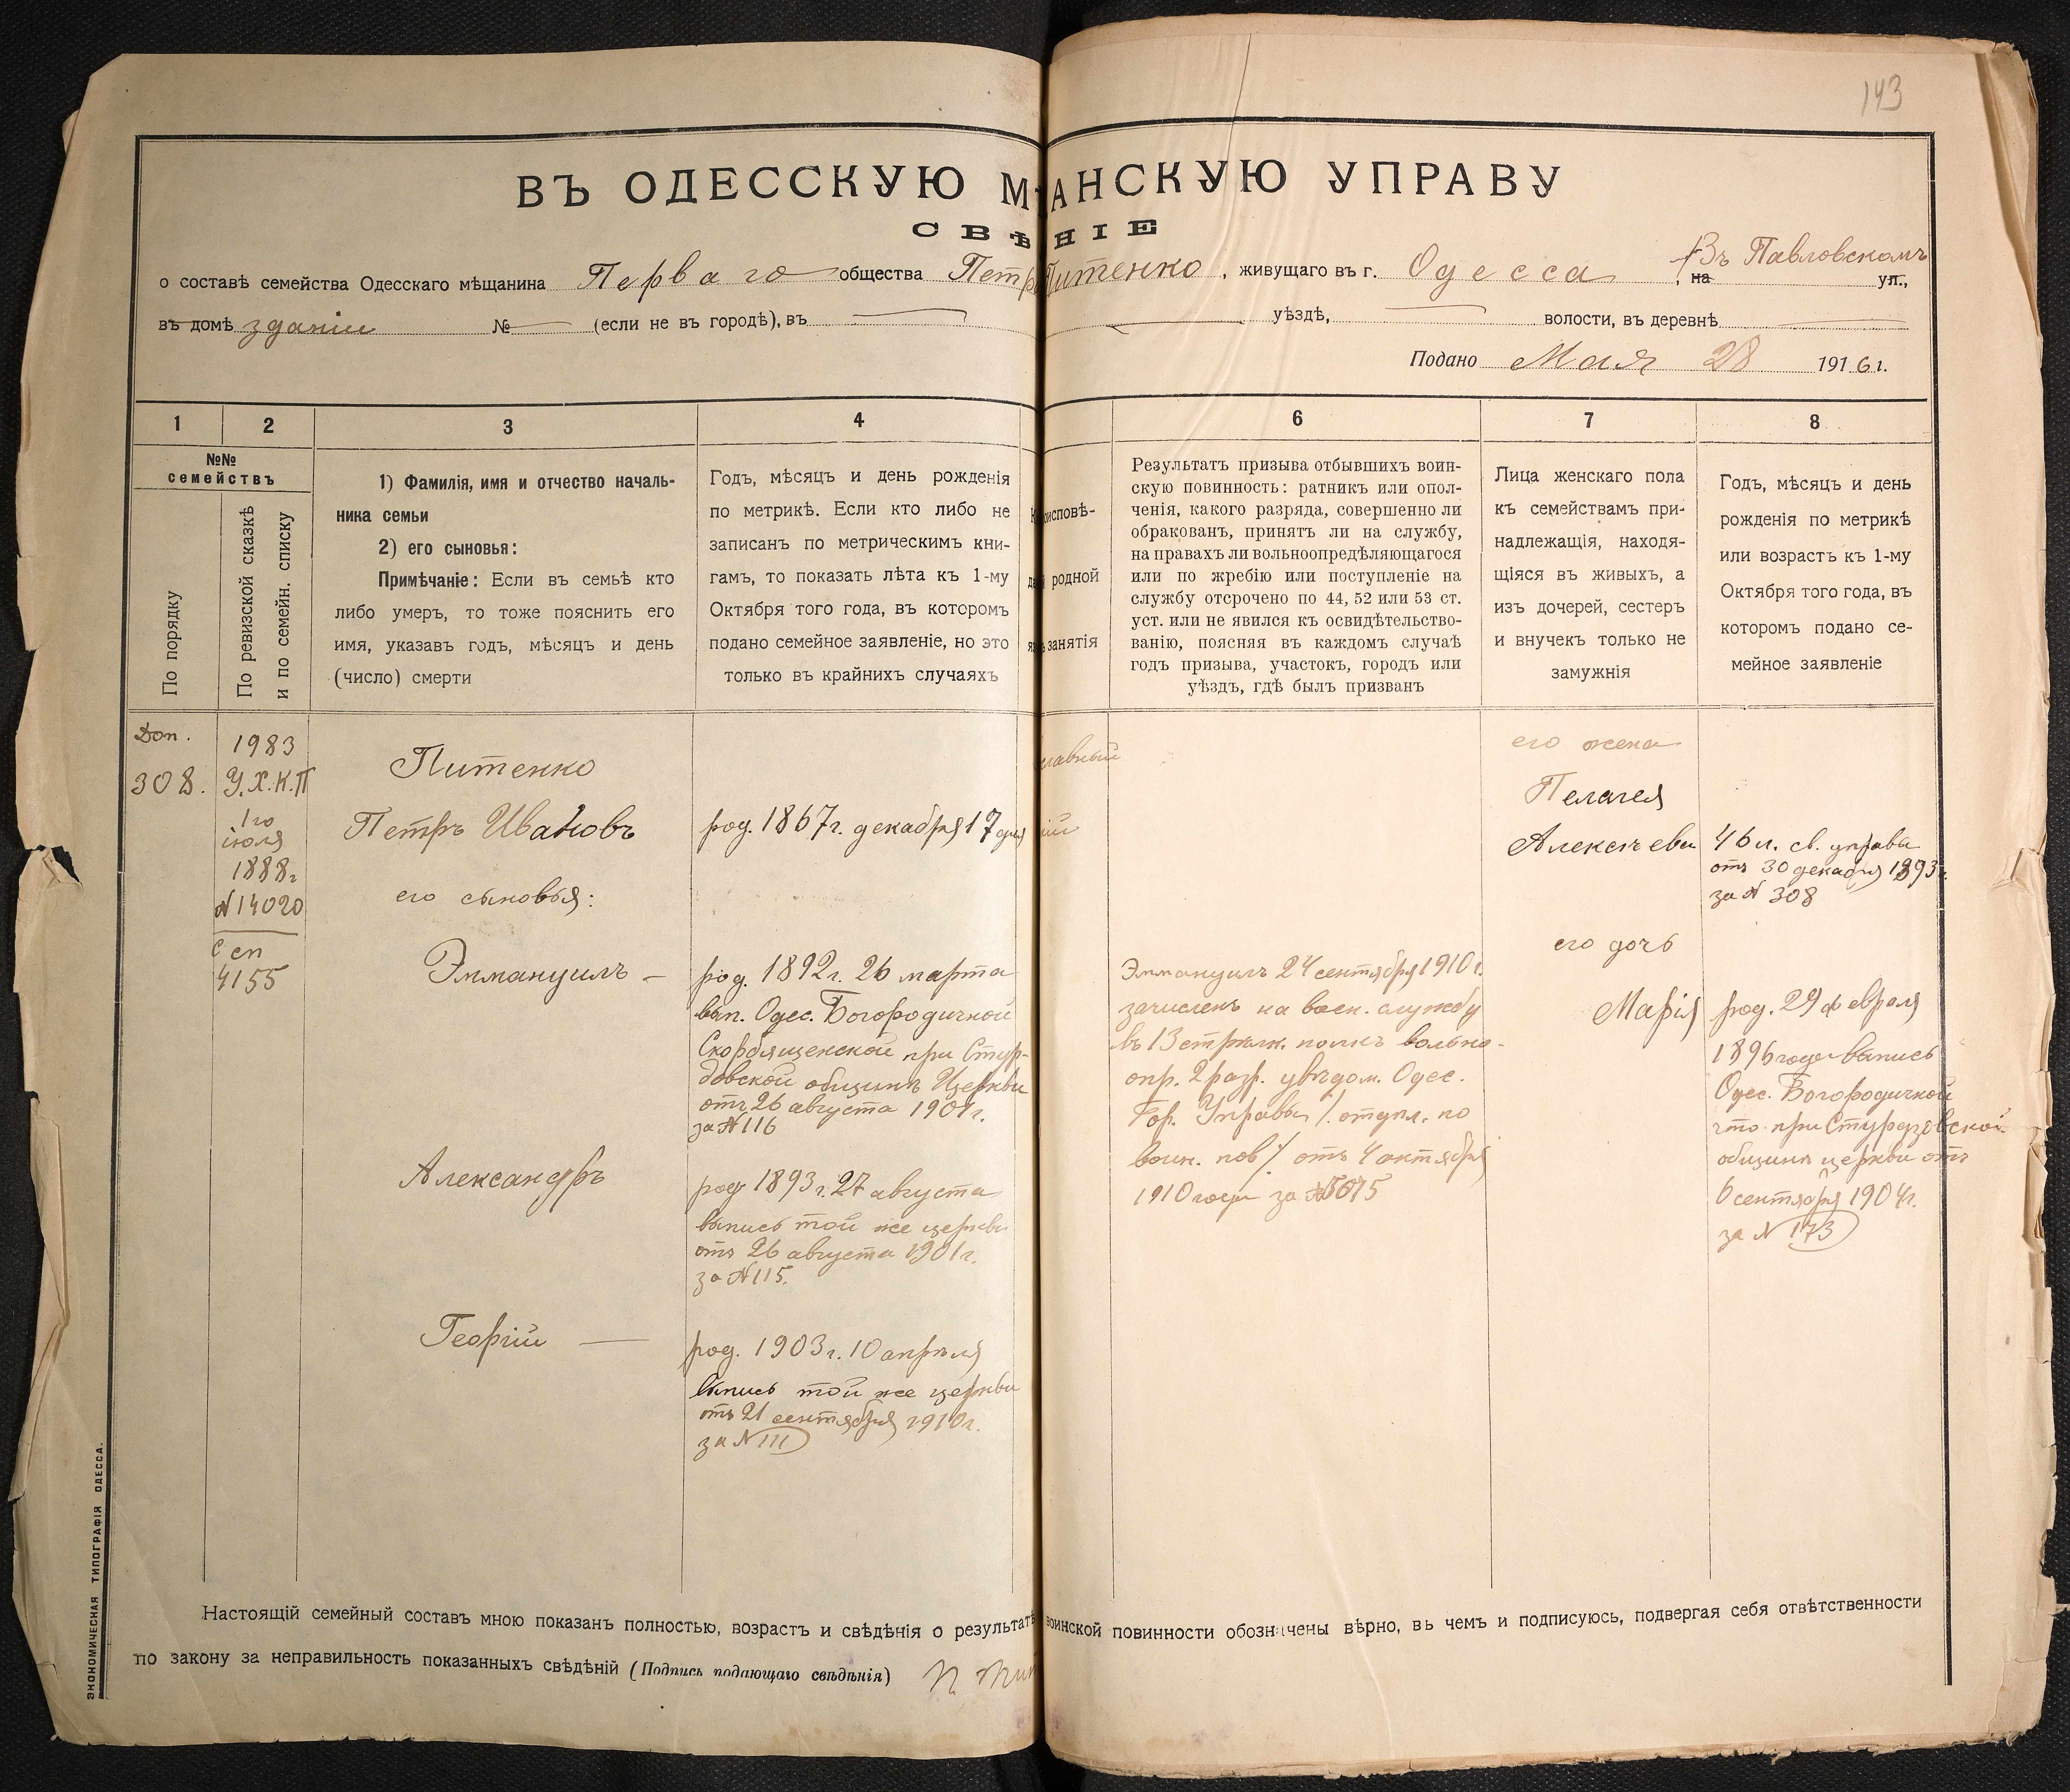 143
ВЪ ОДЕССКУЮ М АНСКУЮ УПРАВУ
СВѢ НІЕ
о составѣ семейства Одесскаго мѣщанина Перваго общества Петр Питенко, живущаго въ г. Одесса, на Въ Павловскомъ ул.,
въ домѣ зданіи № (если не въ городѣ), въ уѣздѣ, волости, въ деревнѣ
Подано Мая 28 1916 г.
1 2 3 4 6 7 8
№№
семействъ
По порядку
По ревизской сказкѣ
и по семейн. списку
1) Фамилія, имя и отчество началь-
ника семьи
2) его сыновья:
Примѣчаніе: Если въ семьѣ кто
либо умеръ, то тоже пояснить его
имя, указавъ годъ, мѣсяцъ и день
(число) смерти
Годъ, мѣсяцъ и день рожденія
по метрикѣ. Если кто либо не
записанъ по метрическимъ кни-
гамъ, то показать лѣта къ 1-му
Октября того года, въ которомъ
подано семейное заявленіе, но это
только въ крайнихъ случаяхъ
исповѣ-
родной
занятія
Результатъ призыва отбывшихъ воин-
скую повинность: ратникъ или опол-
ченія, какого разряда, совершенно ли
обракованъ, принятъ ли на службу,
на правахъ ли вольноопредѣляющагося
или по жребію или поступленіе на
службу отсрочено по 44, 52 или 53 ст.
уст. или не явился къ освидѣтельство-
ванію, поясняя въ каждомъ случаѣ
годъ призыва, участокъ, городъ или
уѣздъ, гдѣ былъ призванъ
Лица женскаго пола
къ семействамъ при-
надлежащія, находя-
щіяся въ живыхъ, а
изъ дочерей, сестеръ
и внучекъ только не
замужнія
Годъ, мѣсяцъ и день
рожденія по метрикѣ
или возрастъ къ 1-му
Октября того года, въ
которомъ подано се-
мейное заявленіе
Доп.
308.
1983
У.Х.К.П
1го
іюля
1888г
№14020
Сеп
4155
Питенко
Петръ Ивановъ
его сыновья:
Эммануилъ —
Александръ
Георгій —
род. 1867г. декабря 17 дня
род. 1892г. 26 марта
вып. Одес. Богородичной
Скорбященской при Стур-
дзовской общинѣ Церкви
отъ 26 августа 1901г.
за №116
род 1893г. 27 августа
выпись той же церкви
отъ 26 августа 1901г.
за №115.
род. 1903г. 10 апрѣля
Выпись той же церкви
отъ 21 сентября 1910г.
за №111
славный
ій
Эммануилъ 24 сентября 1910г.
зачисленъ на воен. службу
въ 13 стрѣлк. полкъ вольно-
опр. 2 разр. увѣдом. Одес.
Гор. Управы /. отдѣл. по
воин. пов/ отъ 4 октября
1910 года за №5075
его жена
Пелагея
Алексѣева
его дочь
Марія
46 л. св. управы
отъ 30 декабря 1893г.
за № 308
род. 29 февраля
1896 года выпись
Одес. Богородичной
что при Стурдзовской
общинѣ церкви отъ
6 сентября 1904г.
за № 173
Настоящій семейный составъ мною показанъ полностью, возрастъ и свѣдѣнія о результатѣ воинской повинности обозначены вѣрно, въ чемъ и подписуюсь, подвергая себя отвѣтственности
по закону за неправильность показанныхъ свѣдѣній (Подпись подающаго свѣдѣнія) П. Пит
ЭКОНОМИЧЕСКАЯ ТИПОГРАФІЯ ОДЕССА.